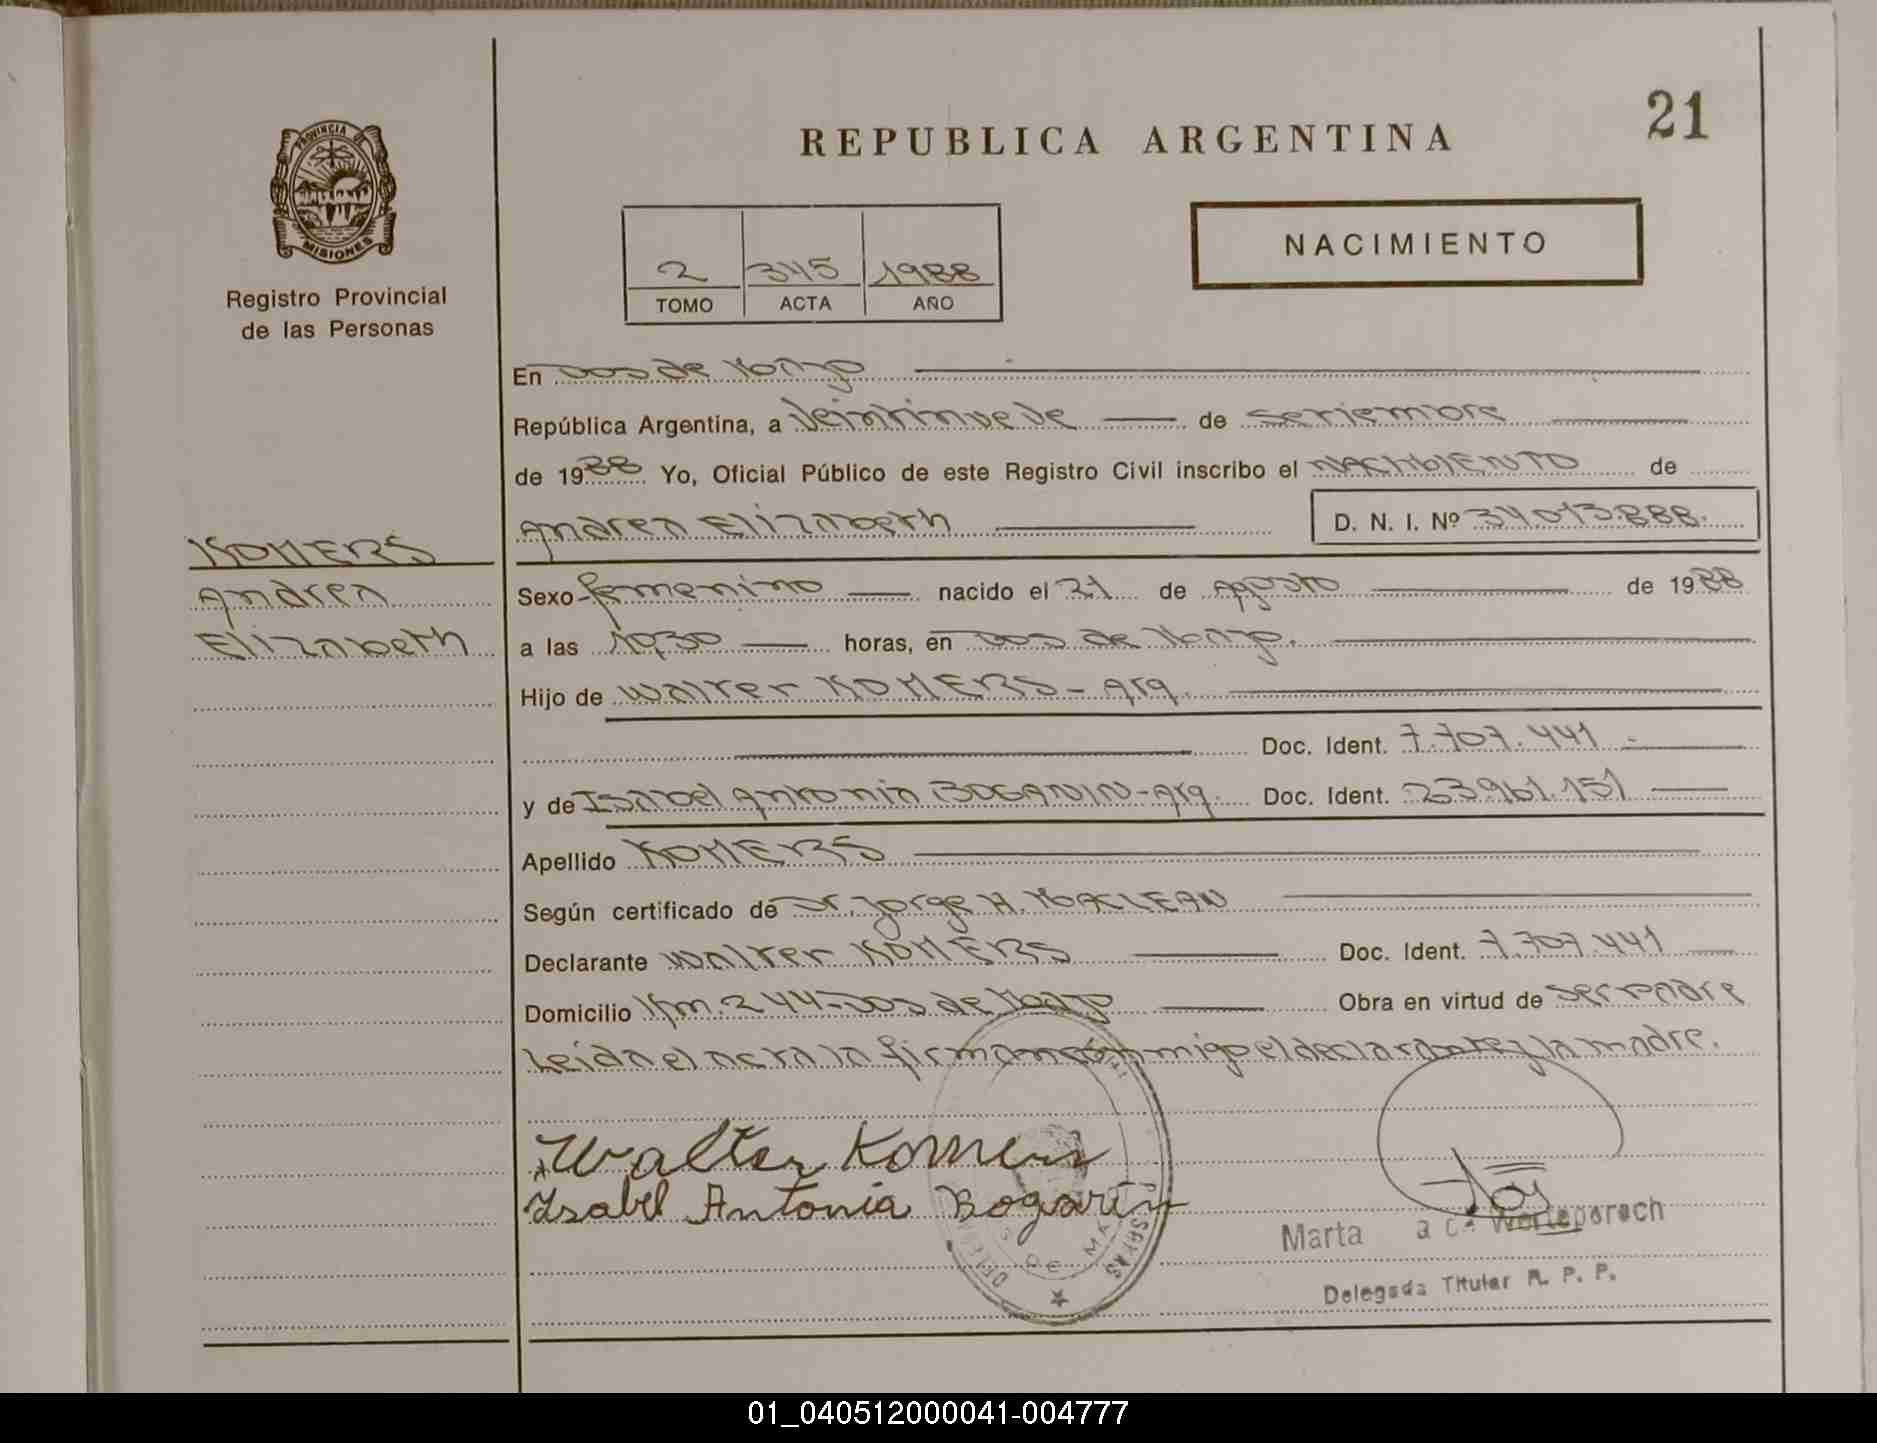 21
REPUBLICA ARGENTINA
PROVINCIA DE
MISIONES
Registro Provincial
de las Personas
NACIMIENTO
2 345 1988
TOMO ACTA AÑO
En Dos de Mayo
República Argentina, a Veintinueve de Setiembre
de 1988 Yo, Oficial Público de este Registro Civil inscribo el NACIMIENTO de
Andrea Elizabeth D. N. I. Nº 34.013.888.
KOMERS
Andrea
Elizabeth
Sexo femenino nacido el 31 de Agosto de 1988
a las 1930 horas, en Dos de Mayo.
Hijo de Walter KOMERS - Arg.
Doc. Ident. 7.707.441 -
y de Isabel Antonia BOGARIN - Arg. Doc. Ident. 23.961.151
Apellido KOMERS
Según certificado de Dr. Jorge H. MACLEAN
Declarante Walter KOMERS Doc. Ident. 7.707.441
Domicilio Km. 244 - Dos de Mayo Obra en virtud de ser padre
Leida el acta la firman conmigo el declarante y la madre.
Walter Komers
Isabel Antonia Bogarín
Marta
Delegada Titular R. P. P.
01_040512000041-004777